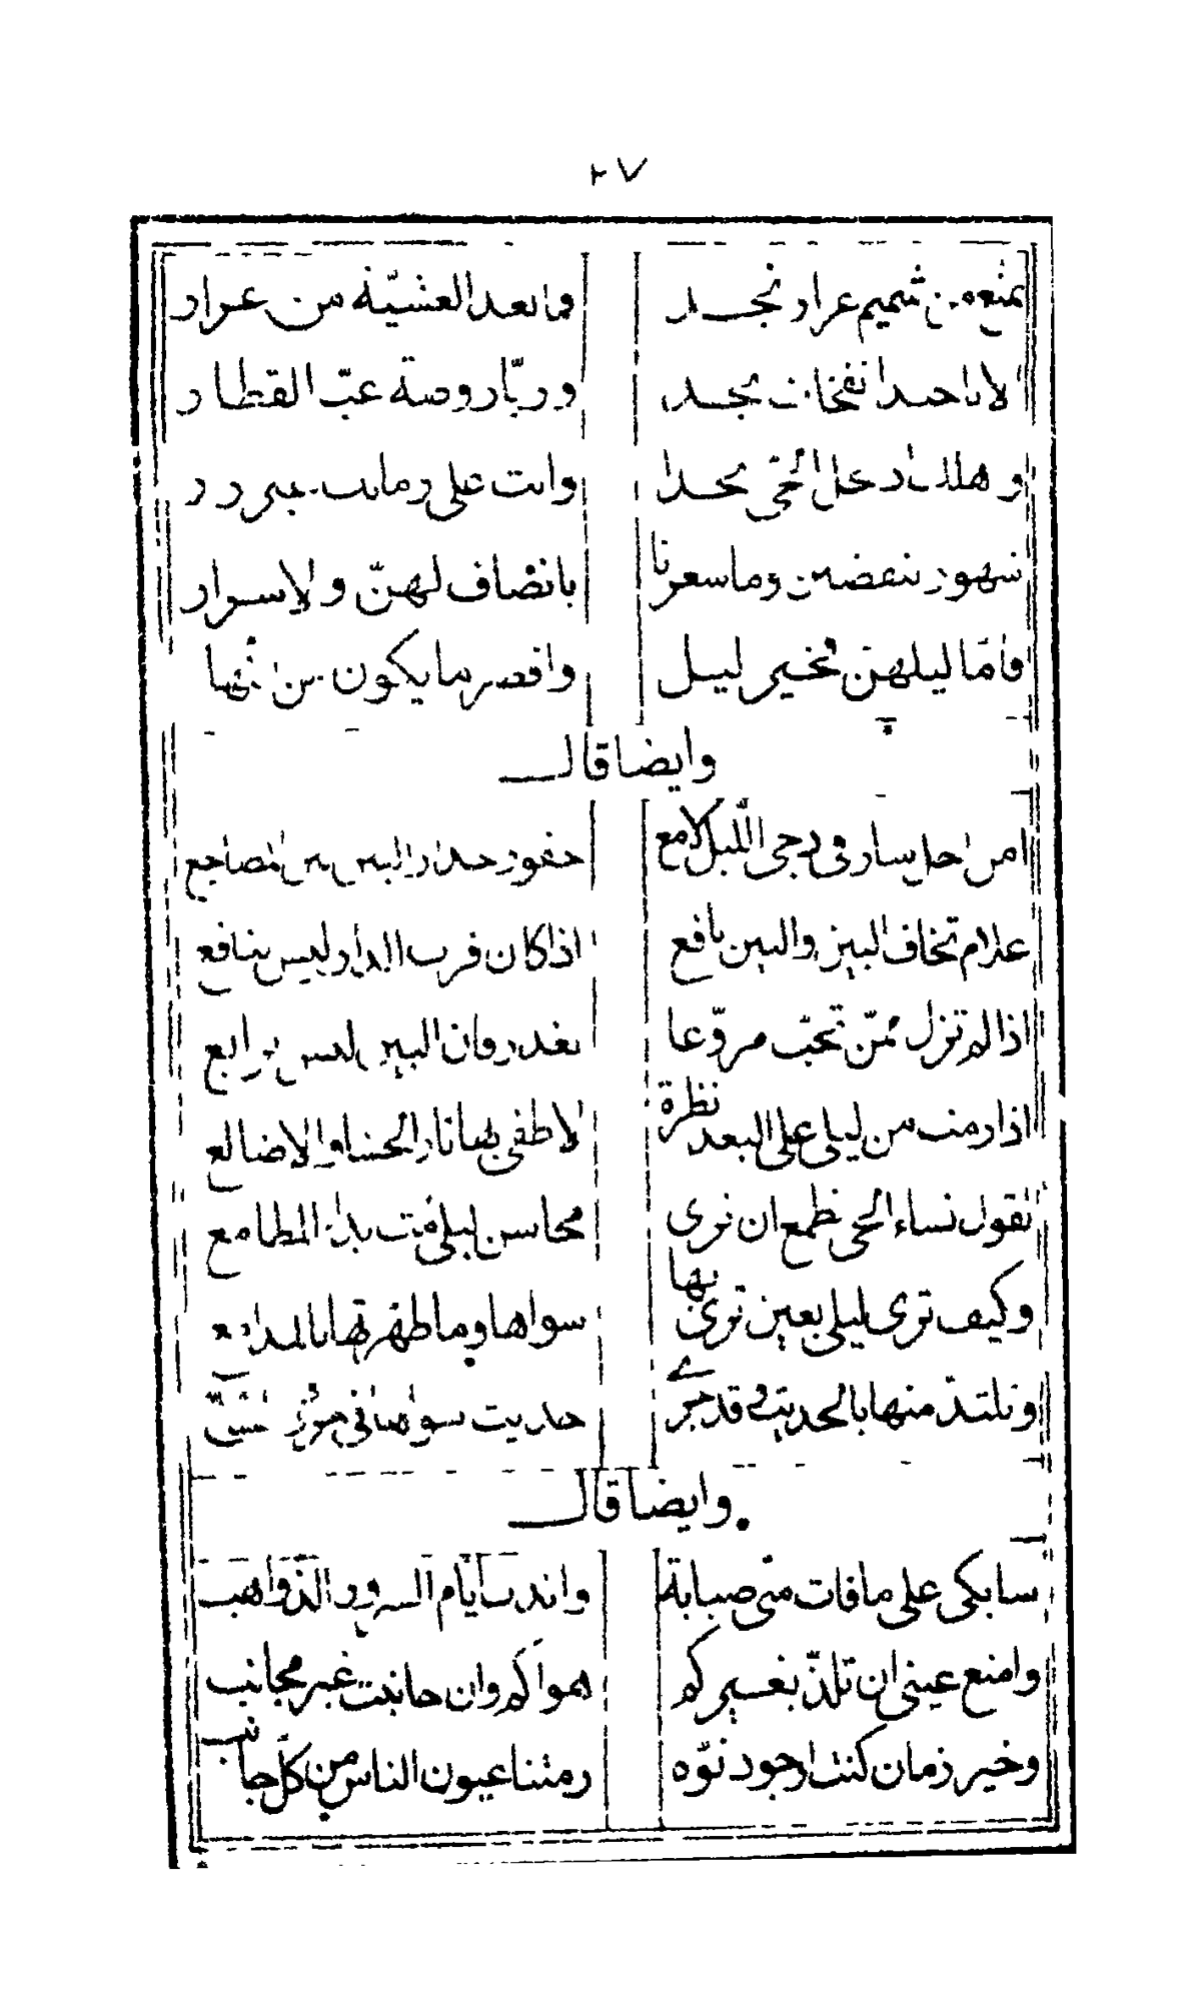 ٢٧
تمتع من شميم عرار نجد    فما بعد العشيّة من عرار
الا يا حبذا نفحات نجد    وريّا روضة غبّ القطار
وهلك اذ يحل الحى نجدا    وانت على زمانك غير زر
شهور ينقضين وما شعرنا    بانصاف لهنّ ولا سرار
فامّا ليلهن فخير ليل    واقصر ما يكون من
وايضا قال
امن اجل سار فى دجى اللّيل لامع    جفوت حذار البين لين المضاجع
علام تخاف البين والبين نافع    اذا كان قرب الدار ليس بنافع
اذا لم تزل ممّن تحبّ مروّعا    بغدر فان البين ليس برائع
اذا رمت من ليلى على البعد نظرة    لاطفى بها نار الحشا والاضالع
تقول نساء الحى تطمع ان ترى    محاسن ليلى مت بداء المطامع
وكيف ترى ليلى بعين ترى بها    سواها وما طهرتها بالمدامع
وتلتذ منها بالحديث وقد جرى    حديث سواها فى
وايضا قال
سابكى على ما فات منى صبابة    واندب ايّام السرور الذواهب
وامنع عينى ان تلذّ بغيركم    هواكم وان جانبت غير مجانب
وخير زمان كنت ارجو دنوّه    رمتنا عيون الناس من كلّ جانب